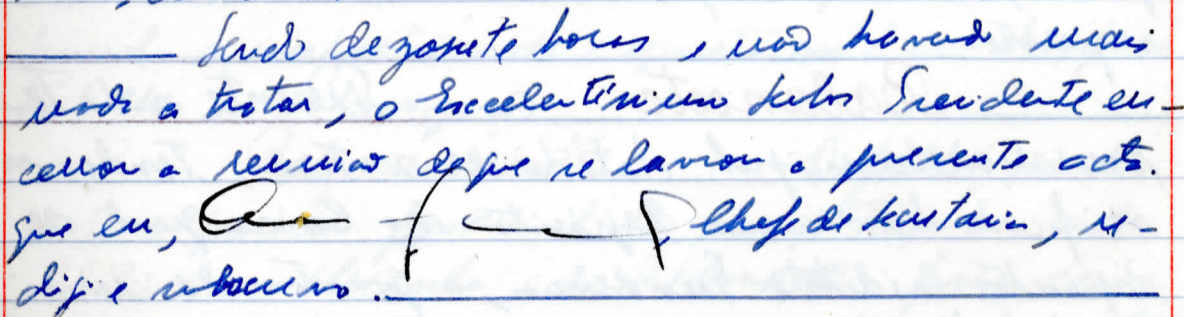 Sendo dezassete horas e não havendo mais
nada a tratar, o Excelentíssimo Senhor Presidente en-
cerrou a reunião de que se lavrou a presente acta.
que eu, , Chefe de Secretaria, re-
digi e subscrevo.